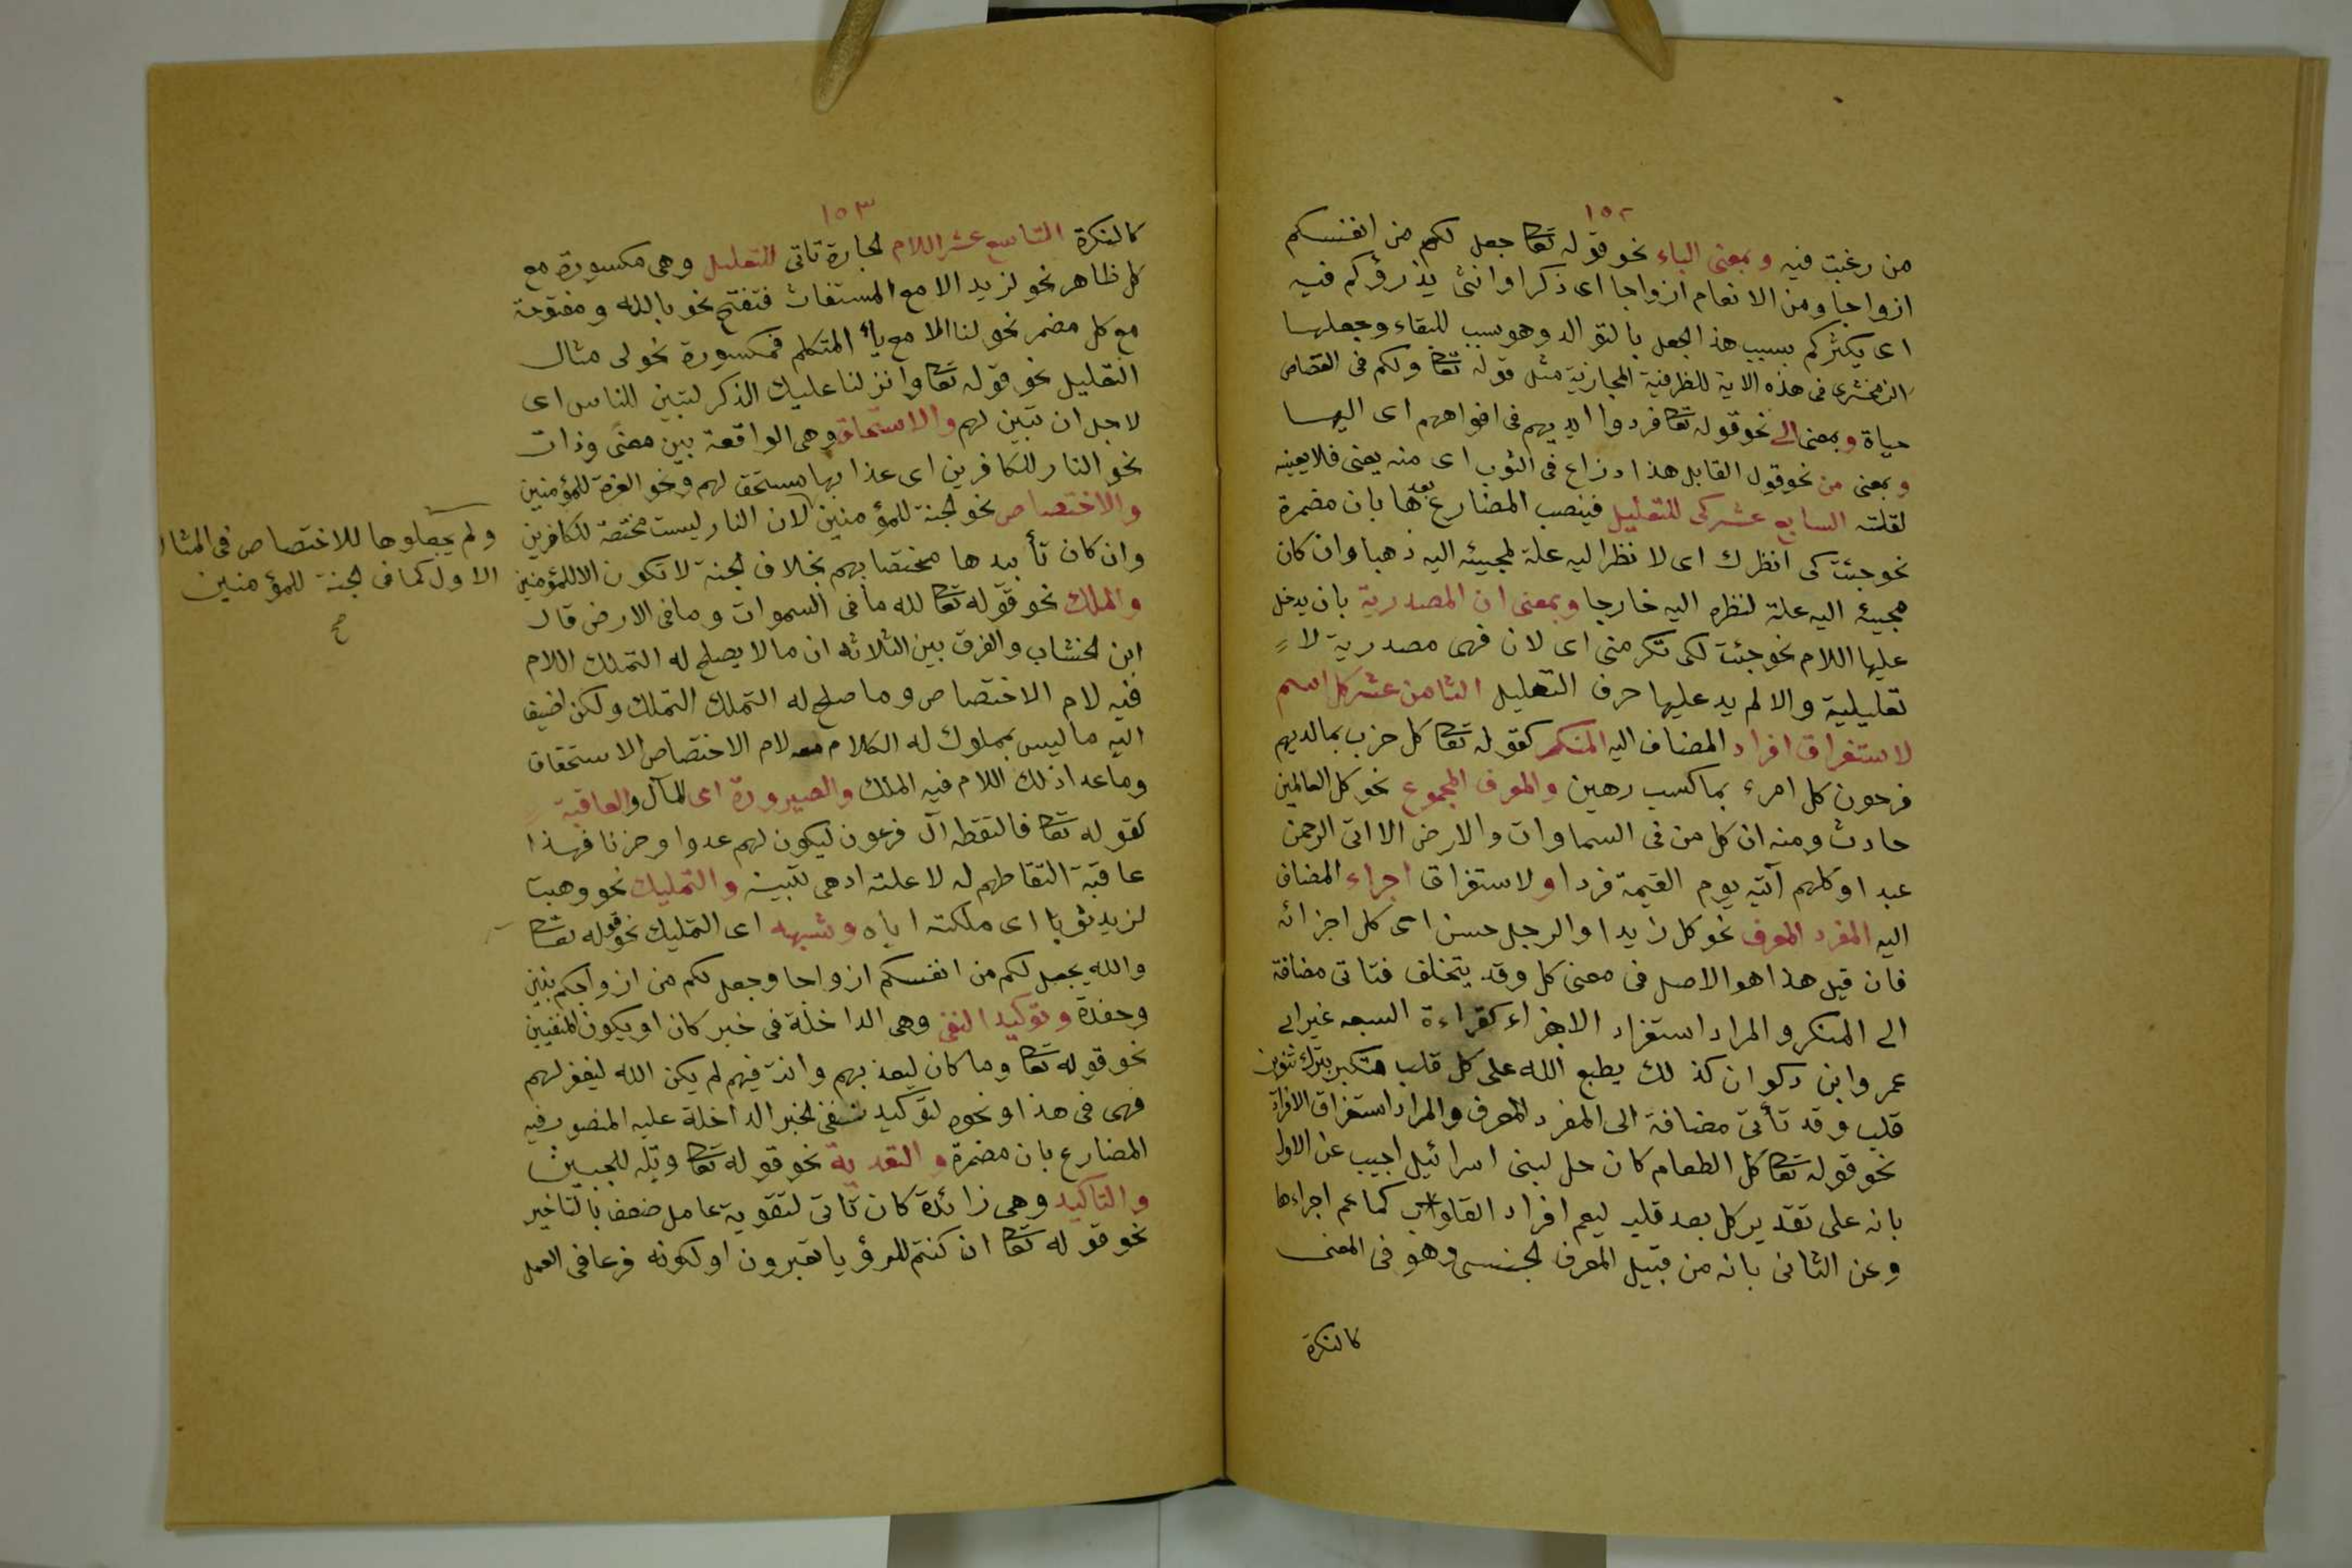 ١٥٢
من رغبت فيه وبمعنى الباء نحو قوله تعا جعل لكم من انفسكم
ازواجا ومن الانعام ازواجا اى ذكرا وانثى يذرؤكم فيه
اى يكثركم بسبب هذا الجعل بالتوالد وهو سبب للبقاء وجعلها
الزمخشرى فى هذه الاية للظرفية المجازية مثل قوله تعا ولكم فى القصاص
حياة وبمعنى الى نحو قوله تعا فردوا ايديهم فى افواههم اى اليها
وبمعنى من نحو قول القايل هذا ذراع فى الثوب اى منه يعنى فلا يعيبه
لقلته السابع عشر كى للتعليل فينصب المضارع بعدها بان مضمرة
نحو جئت كى انظرك اى لا نظر اليه علة لمجيئه اليه ذهبا وان كان
مجيئه اليه علة لنظره اليه خارجا وبمعنى ان المصدرية بان يدخل
عليها اللام نحو جئت لكى تكرمنى اى لان فهى مصدرية لا
تعليلية والا لم يدعليها حرف التعليل الثامن عشر كل اسم
لاستغراق افراد المضاف اليه المنكر كقوله تعا كل حزب بمالديهم
فرحون كل امرء بما كسب رهين والمعرف المجموع نحو كل العالمين
حادث ومنه ان كل من فى السماوات والارض الا اتى الرحمن
عبدا وكلهم آتيه يوم القيمة فردا ولاستغراق اجزاء المضاف
اليه المفرد المعرف نحو كل زيد او الرجل حسن اى كل اجزائه
فان قيل هذا هو الاصل فى معنى كل وقد يتخلف فتاتى مضافة
الى المنكر والمراد استغراد الاجزاء كقراءة السبعه غير ابى
عمرو وابن دكوان كذلك يطبع الله على كل قلب متكبر بترك تنوين
قلب وقد تأتى مضافة الى المفرد المعرف والمراد استغراق الافراد
نحو قوله تعا كل الطعام كان حل لبنى اسرائيل اجيب عن الاول
بانه على تقدير كل بعد قلب ليعم افراد القلوب كما عم اجزاءها
وعن الثانى بانه من قبيل المعرف الجنسى وهو فى المعنى
كالنكرة
١٥٣
كالنكرة التاسع عشر اللام الجارة تاتى للتعليل وهى مكسورة مع
كل ظاهر نحو لزيد الا مع المستغاث فتفتح نحو يا لله ومفتوحة
مع كل مضمر نحو لنا الا مع ياء المتكلم فمكسورة نحو لى مثال
التعليل نحو قوله تعا وانزلنا عليك الذكر لتبين للناس اى
لاجل ان تبين لهم والاستحقاق وهى الواقعة بين معنى وذات
نحو النار للكافرين اى عذابها مستحق لهم ونحو العزة للمؤمنين
والاختصاص نحو الجنة للمؤمنين لان النار ليست مختصة للكافرين
وان كان تأبيدها مختصا بهم بخلاف الجنة لا تكون الا للمؤمنين
والملك نحو قوله تعا لله ما فى السموات وما فى الارض قال
ابن الخشاب والفرق بين الثلاثه ان ما لا يصلح له التملك اللام
فيه لام الاختصاص وما صلح له التملك التملك ولكن اضيف
اليه ما ليس بمملوك له الكلام معه لام الاختصاص الاستحقاق
وما عدا ذلك اللام فيه الملك والصيرورة اى المآل والعاقبة
كقوله تعا فالتقطه آل فرعون ليكون لهم عدوا وحزنا فهذا
عاقبة التقاطهم له لا علته اذ هى تبنيه والتمليك نحو وهبت
لزيد ثوبا اى ملكته اياه وشبهه اى التمليك نحو قوله تعا
والله يجعل لكم من انفسكم ازواجا وجعل لكم من ازواجكم بنين
وحفدة وتوكيد النفى وهى الداخلة فى خبر كان او يكون المنفيين
نحو قوله تعا وما كان ليعذبهم وانت فيهم لم يكن الله ليغفر لهم
فهى فى هذا ونحوه لتوكيد نفى الخبر الداخلة عليه المنصوب فيه
المضارع بان مضمرة والتعدية نحو قوله تعا وتله للجبين
والتاكيد وهى زائدة كان تاتى لتقوية عامل ضعف بالتاخير
نحو قوله تعا ان كنتم للرؤيا تعبرون او لكونه فرعا فى العمل
ولم يجعلوها للاختصاص فى المثال
الاول كما فى الجنة للمؤمنين
صح